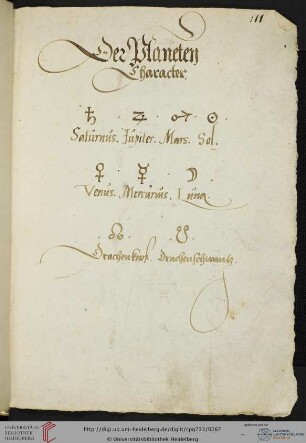 111
Der Planeten
Character.
♄ . ♃ . ♂ . ☉
Saturnus. Jupiter. Mars. Sol.
♀ . ☿ . ☽
Venus. Mercurius. Luna.
☊ . ☋
Drachenkopf. Drachenschwantz.
UNIVERSITÄTS-
BIBLIOTHEK
HEIDELBERG
http://digi.ub.uni-heidelberg.de/diglit/cpg733/0267
© Universitätsbibliothek Heidelberg.